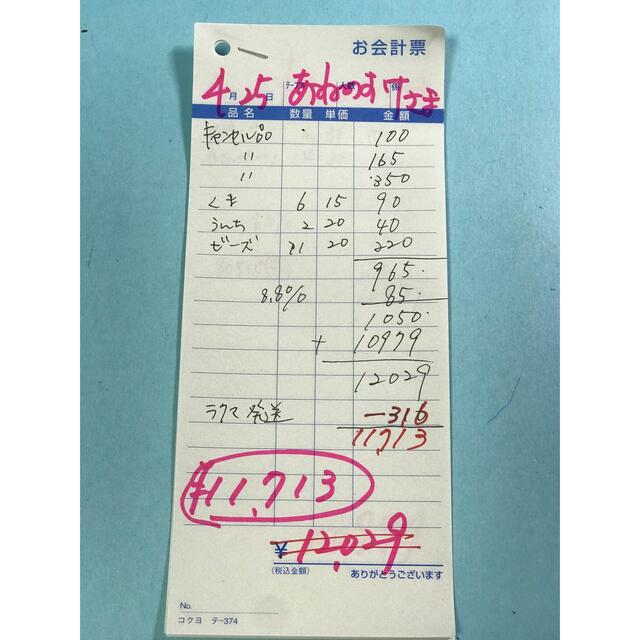 お会計票
4月25日 あねのすけさま
テーブル 人数 係
品名 数量 単価 金額
キャンセル品 100
〃 165
〃 350
くま 6 15 90
うんち 2 20 40
ビーズ 11 20 220
965
8.8% 85
1050
+ 10979
12029
ラクマ発送 -316
11,713
¥11,713
¥ 12,029
(税込金額) ありがとうございます
No.
コクヨ テ-374